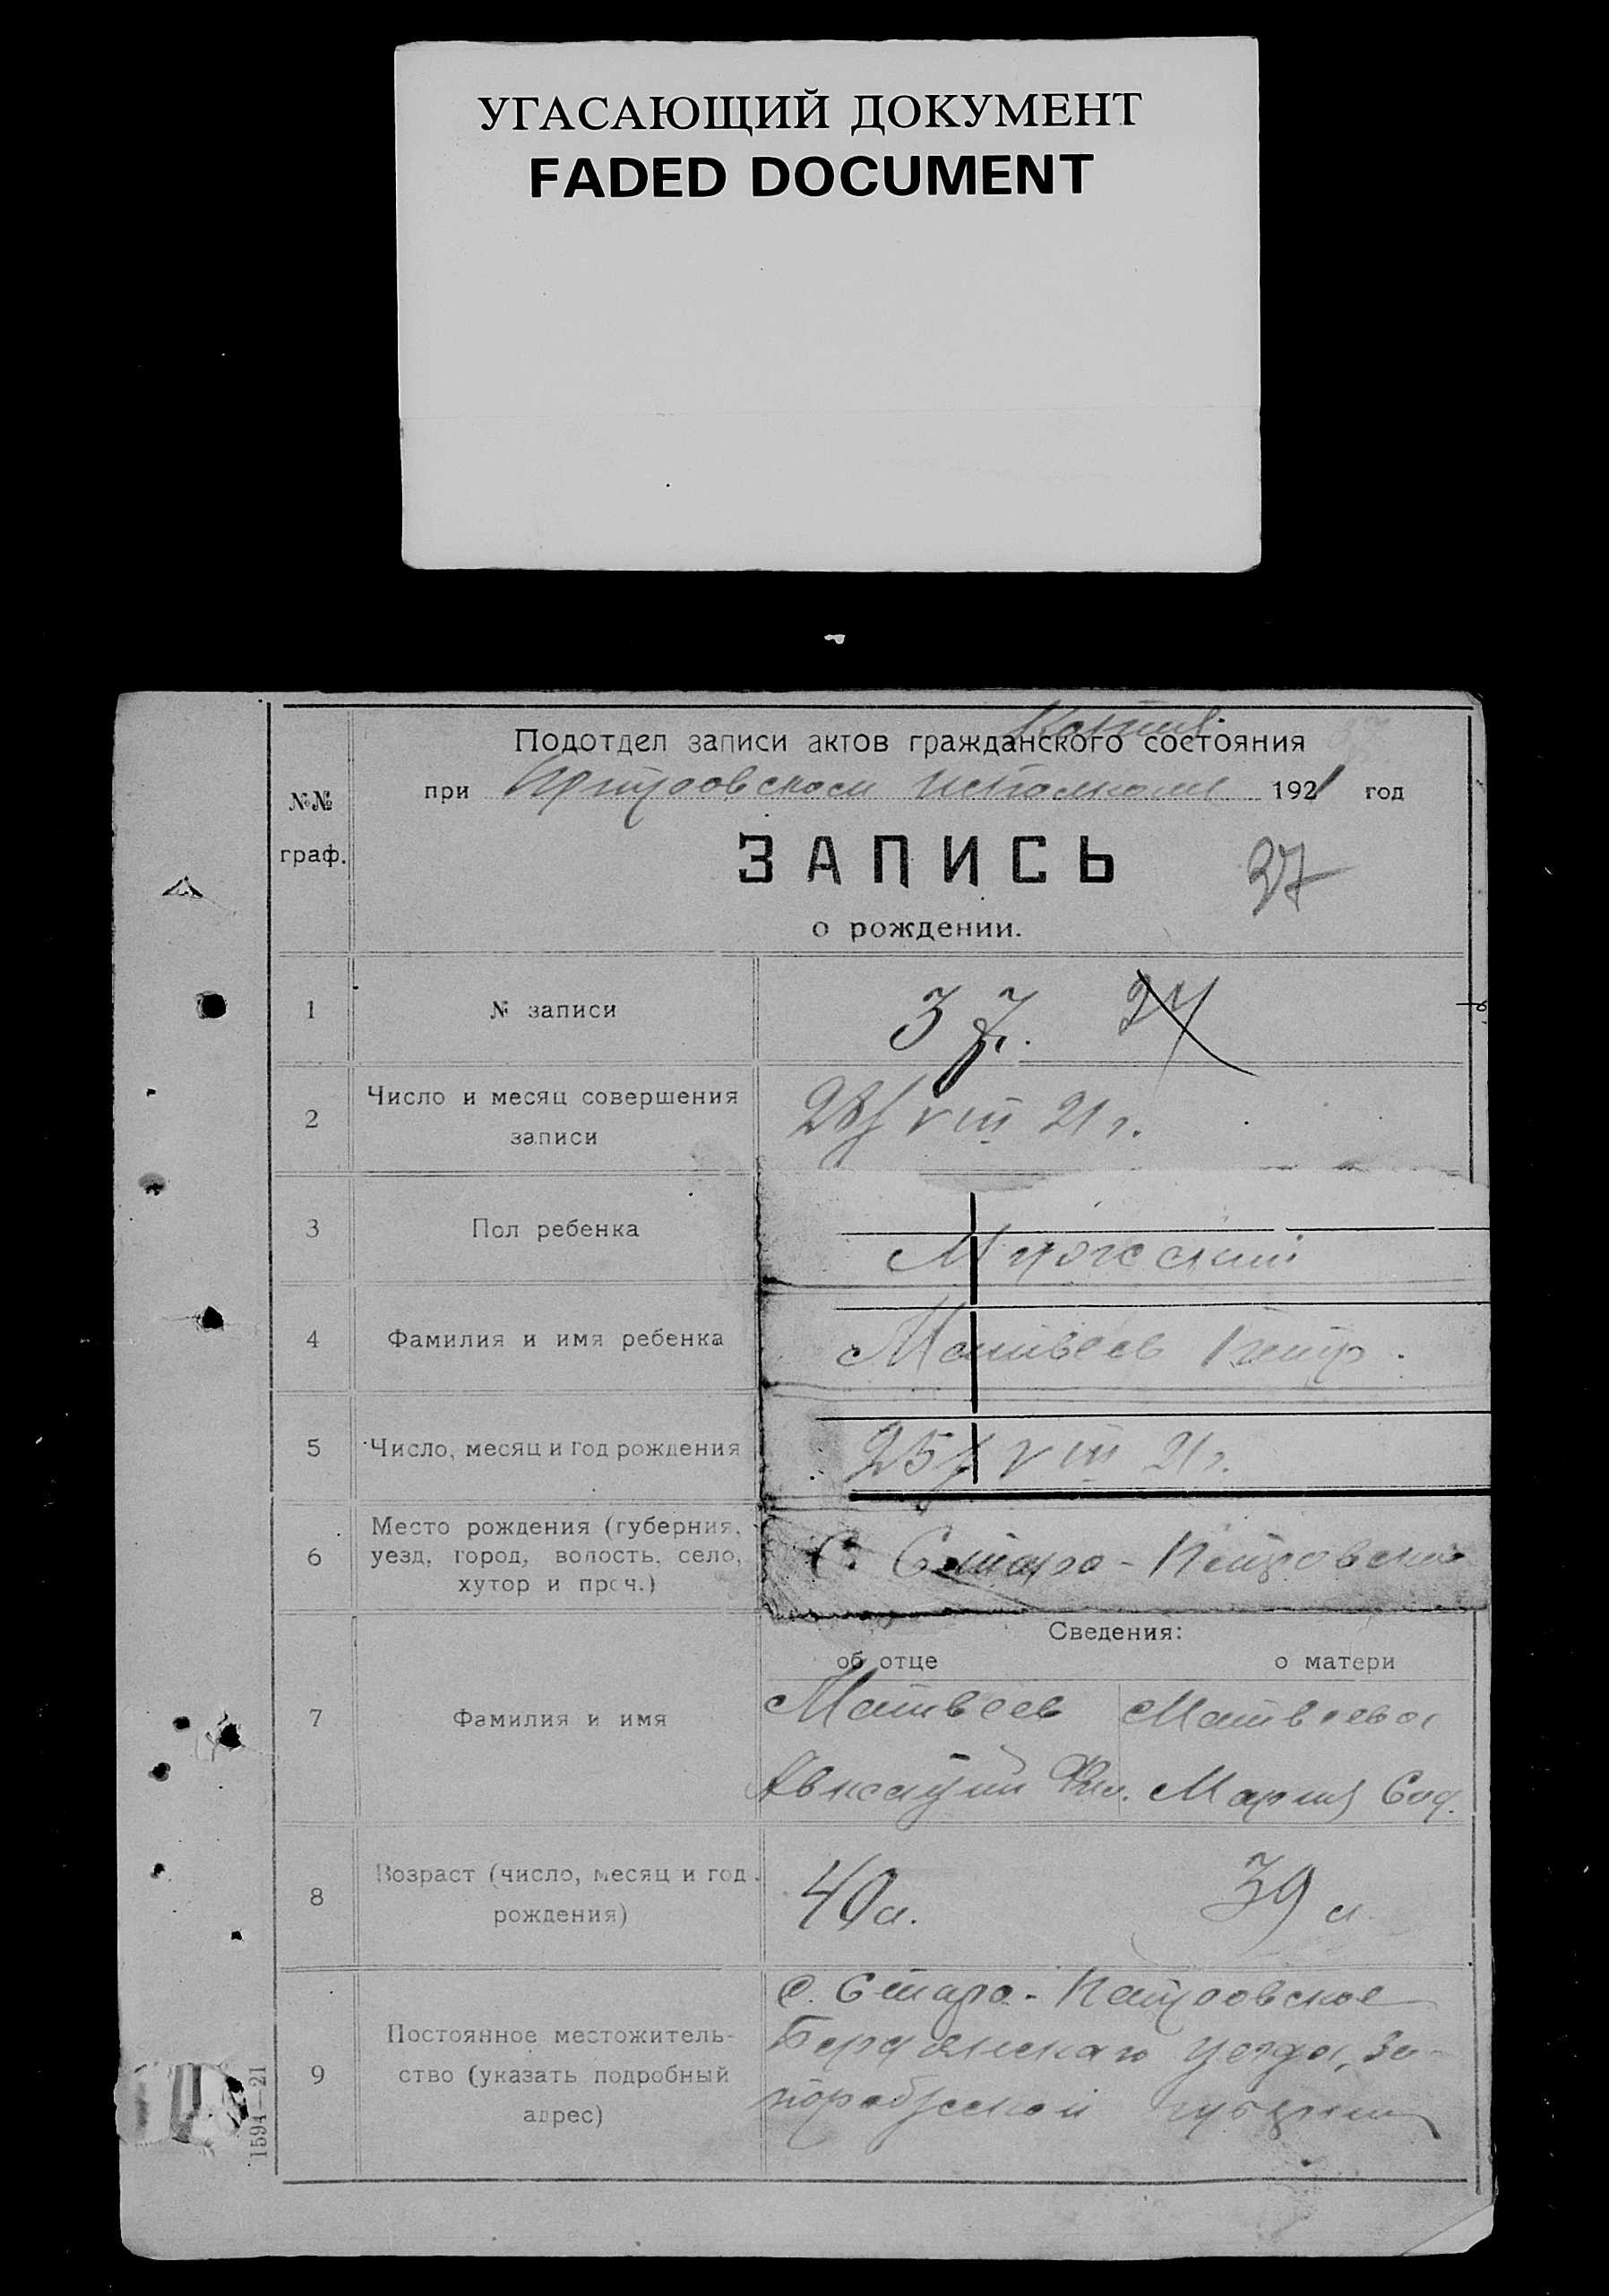 УГАСАЮЩИЙ ДОКУМЕНТ
FADED DOCUMENT
Копия
Подотдел записи актов гражданского состояния
при Петровском исполкоме 1921 год
№№
граф.
ЗАПИСЬ
37
о рождении.
1 № записи 37.
2 Число и месяц совершения
записи
VIII 21 г.
3 Пол ребенка Мужской
4 Фамилия и имя ребенка Матвеев Петр.
5 Число, месяц и год рождения 25/VIII 21 г.
6 Место рождения (губерния,
уезд, город, волость, село,
хутор и проч.)
С. Старо-Петровское
Сведения:
об отце о матери
7 Фамилия и имя
Матвеев Матвеева
Авксентий Мария
8 Возраст (число, месяц и год
рождения)
40 л. 39 л.
9 Постоянное местожитель-
ство (указать подробный
адрес)
с. Старо-Петровское
Бердянского уезда, За-
порожской губернии
1594—21